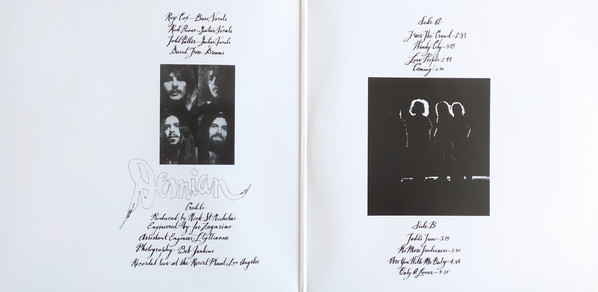 Roy Cox—Bass, Vocals
Rod Prince—Guitar, Vocals
Todd Potter—Guitar, Vocals
David Fore—Drums
Demian
Credits:
Produced by Nick St. Nicholas
Engineered by: Joe Zagarino
Assistant Engineer
Photography—Bob Jenkins
Recorded live at the Record Plant, Los Angeles
Side A
Face The Crowd—2:53
Windy City—
Love People—2:99
Coming—
Side B
Todd's Tune—3:29
No More Tenderness—3:50
Are You With Me Baby—4:54
Only A Loner—4:35